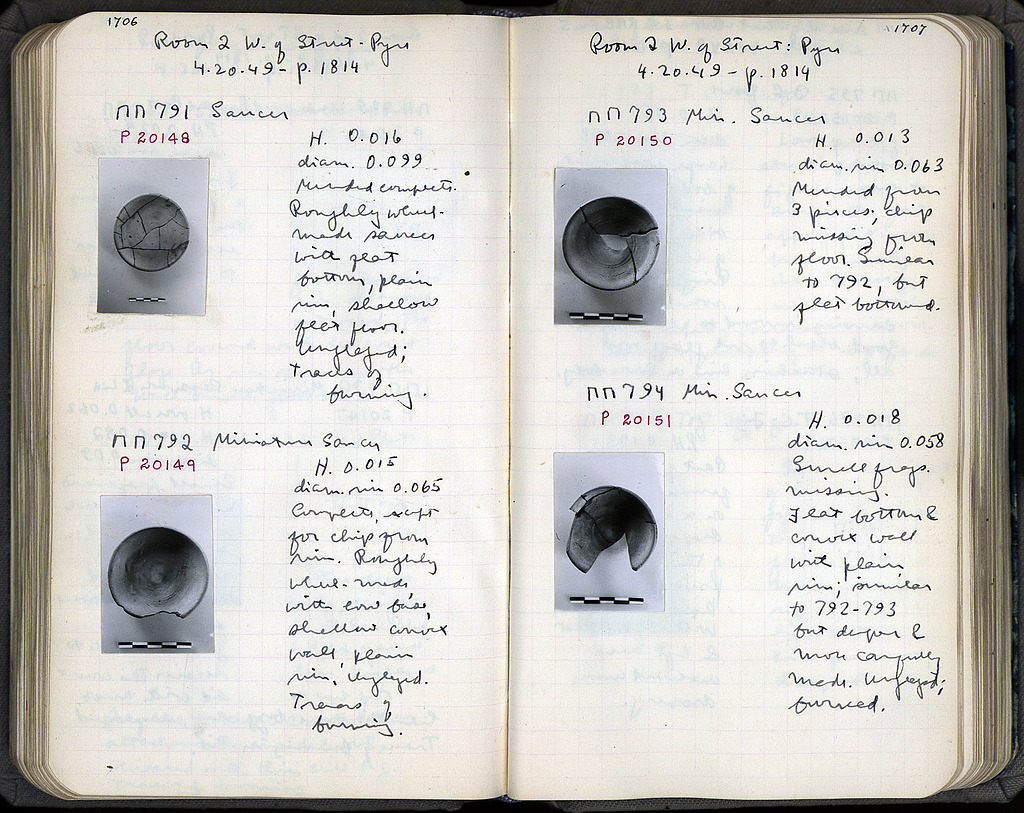 1706
Room 2 W. of Street: Pyre
4.20.49 - p. 1814
ΠΠ 791 Saucer
P 20148
H. 0.016
diam. 0.099
Mended complete.
Roughly wheel-
made saucer
with flat
bottom, plain
rim, shallow
flat floor.
Unglazed;
traces of
burning.
ΠΠ 792 Miniature Saucer
P 20149
H. 0.015
diam. rim 0.065
Complete, except
for chip from
rim. Roughly
wheel-made
with low base,
shallow convex
wall, plain
rim. Unglazed.
Traces of
burning.
1707
Room 2 W. of Street: Pyre
4.20.49 - p. 1814
ΠΠ 793 Min. Saucer
P 20150
H. 0.013
diam. rim 0.063
Mended from
3 pieces; chip
missing from
floor. Similar
to 792, but
flat bottomed.
ΠΠ 794 Min. Saucer
P 20151
H. 0.018
diam. rim 0.058
Small frags.
missing.
Flat bottom &
convex wall
with plain
rim; similar
to 792-793
but deeper &
more carefully
made. Unglazed;
burned.